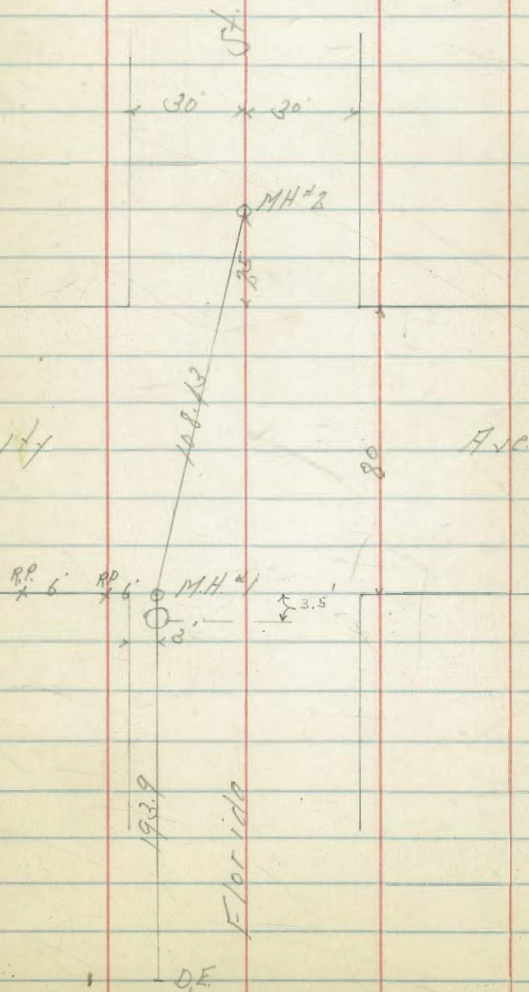 St.
30' 30'
MH #2
25
108.13
Ave
80
R.P. 6' R.P. 6' M.H #1
3.5'
8'
193.9
Florida
D.E.